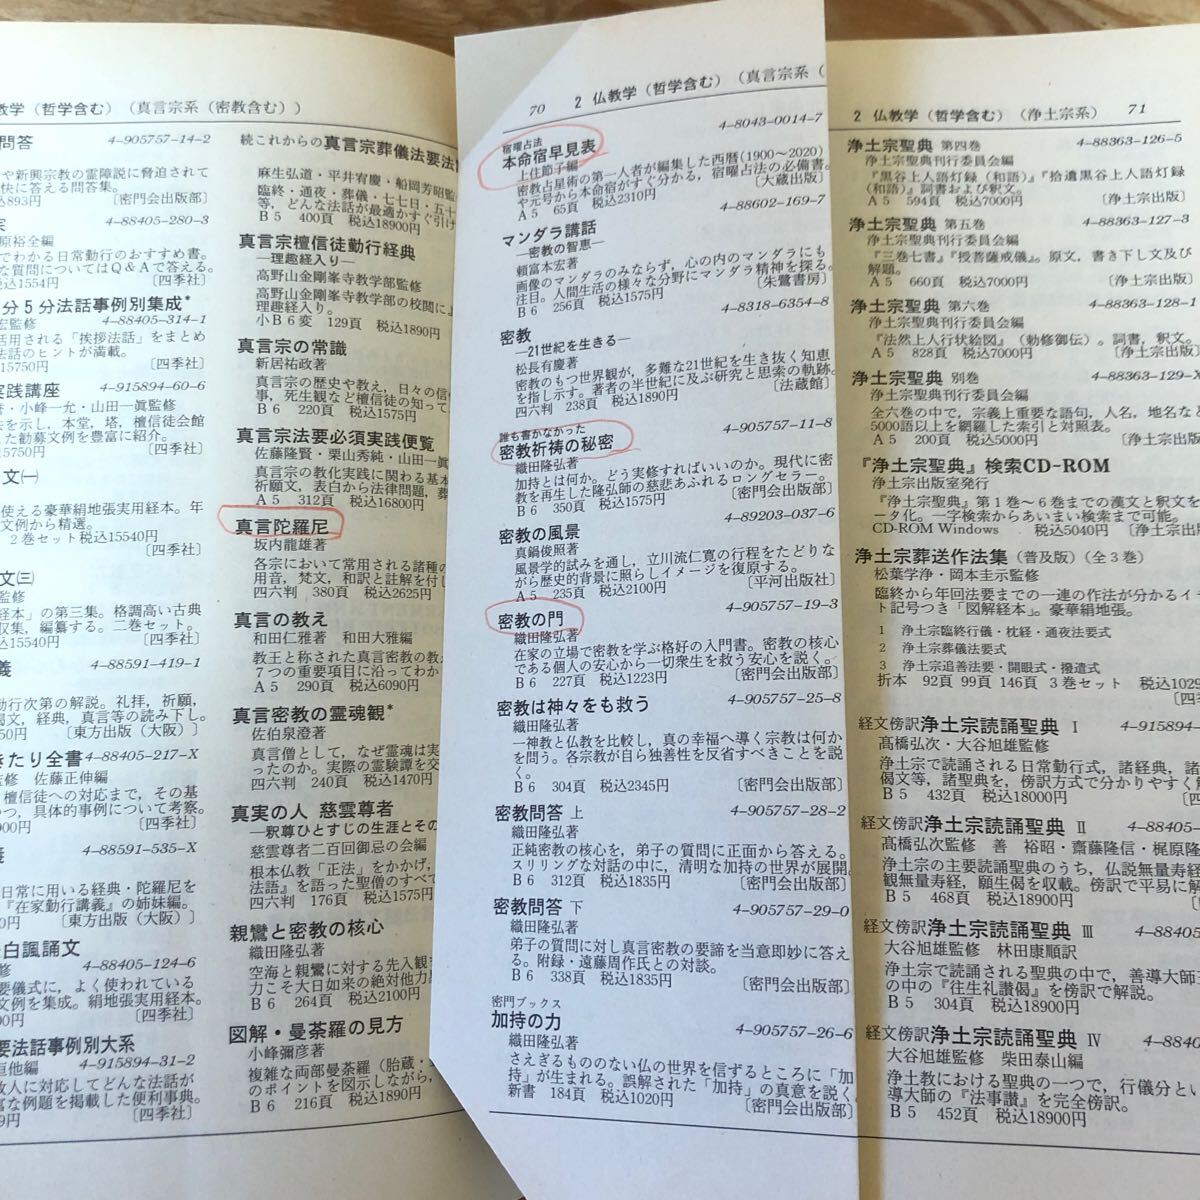 教学（哲学含む）（真言宗系（密教含む））
問答 4-905757-14-2
や新興宗教の霊障説に脅迫されて
快に答える問答集。
込893円 〔密門会出版部〕
4-88405-280-3
原裕全編
でわかる日常勤行のおすすめ書。
な質問についてはQ＆Aで答える。
税込1554円 〔四季社〕
分5分法話事例別集成*
宏監修 4-88405-314-1
活用される「挨拶法話」をまとめ
法話のヒントが満載。
15750円 〔四季社〕
実践講座 4-915894-60-6
・小峰一允・山田一眞監修
を示し，本堂，塔，檀信徒会館
した勧募文例を豊富に紹介。
〔四季社〕
文㈠
使える豪華絹地張実用経本。年
文例から精選。
2巻セット税込15540円
〔四季社〕
文㈢
経本」の第三集。格調高い古典
収集，編纂する。二巻セット。
込15540円 〔四季社〕
義 4-88591-419-1
勤行次第の解説。礼拝，祈願，
偈文，経典，真言等の読み下し。
50円 〔東方出版（大阪）〕
きたり全書 4-88405-217-X
監修 佐藤正伸編
檀信徒への対応まで，その基
つつ，具体的事例について考察。
900円 〔四季社〕
義 4-88591-535-X
日常に用いる経典・陀羅尼を
『在家勤行講義』の姉妹編。
0円 〔東方出版（大阪）〕
白諷誦文
修 4-88405-124-6
要儀式に，よく使われている
文例を集成。絹地張実用経本。
00円 〔四季社〕
要法話事例別大系
恒他編 4-915894-31-2
故人に対応してどんな法話が
富な例題を掲載した便利事典。
9円 〔四季社〕
続これからの真言宗葬儀法要法
麻生弘道・平井宥慶・船岡芳昭監
臨終・通夜・葬儀・七七日・五十
等，どんな法話が最適かすぐ引け
B5 400頁 税込18900円
真言宗檀信徒勤行経典
―理趣経入り―
高野山金剛峯寺教学部監修
高野山金剛峯寺教学部の校閲によ
理趣経入り。
小B6変 129頁 税込1890円
真言宗の常識
新居祐政著
真言宗の歴史や教え，日々の信
事，死生観など檀信徒の知って
B6 220頁 税込1575円
真言宗法要必須実践便覧
佐藤隆賢・栗山秀純・山田一眞
真言宗の教化実践に関わる基本
祈願文，表白から法律問題，葬
A5 312頁 税込16800円
真言陀羅尼
坂内龍雄著
各宗において常用される諸種の
用音，梵文，和訳と註解を付し
四六判 380頁 税込2625円
真言の教え
和田仁雅著 和田大雅編
教王と称された真言密教の教え
7つの重要項目に沿ってわか
A5 290頁 税込6090円
真言密教の霊魂観*
佐伯泉澄著
真言僧として，なぜ霊魂は実
ったのか。実際の霊験譚を交
四六判 240頁 税込1470円
真実の人 慈雲尊者
―釈尊ひとすじの生涯とその
慈雲尊者二百回御忌の会編
根本仏教「正法」をかかげ，
法語』を語った聖僧のすべて
四六判 176頁 税込1575円
親鸞と密教の核心
織田隆弘著
空海と親鸞に対する先入観
力こそ大日如来の絶対他力
B6 264頁 税込2100円
図解・曼荼羅の見方
小峰彌彦著
複雑な両部曼荼羅（胎蔵・
のポイントを図示しながら，
B6 216頁 税込1890円
70 2 仏教学（哲学含む）（真言宗系（
4-8043-0014-7
宿曜占法
本命宿早見表
上住節子編
密教占星術の第一人者が編集した西暦(1900～2020)
や元号から本命宿がすぐ分かる，宿曜占法の必備書。
A5 65頁 税込2310円 〔大蔵出版〕
4-88602-169-7
マンダラ講話
―密教の智恵―
頼富本宏著
画像のマンダラのみならず，心の内のマンダラにも
注目。人間生活の様々な分野にマンダラ精神を探る。
B6 256頁 税込1575円 〔朱鷺書房〕
4-8318-6354-8
密教
―21世紀を生きる―
松長有慶著
密教のもつ世界観が，多難な21世紀を生き抜く知恵
を指し示す。著者の半世紀に及ぶ研究と思索の軌跡。
四六判 238頁 税込1890円 〔法蔵館〕
4-905757-11-8
誰も書かなかった
密教祈祷の秘密
織田隆弘著
加持とは何か。どう実修すればいいのか。現代に密
教を再生した隆弘師の慈悲あふれるロングセラー。
B6 350頁 税込1575円 〔密門会出版部〕
4-89203-037-6
密教の風景
真鍋俊照著
風景学的試みを通し，立川流仁寛の行程をたどりな
がら歴史的背景に照らしイメージを復原する。
A5 235頁 税込2100円 〔平河出版社〕
4-905757-19-3
密教の門
織田隆弘著
在家の立場で密教を学ぶ格好の入門書。密教の核心
である個人の安心から一切衆生を救う安心を説く。
B6 227頁 税込1223円 〔密門会出版部〕
4-905757-25-8
密教は神々をも救う
織田隆弘著
一神教と仏教を比較し，真の幸福へ導く宗教は何か
を問う。各宗教が自ら独善性を反省すべきことを説
く。
B6 304頁 税込2345円 〔密門会出版部〕
密教問答 上 4-905757-28-2
織田隆弘著
正純密教の核心を，弟子の質問に正面から答える。
スリリングな対話の中に，清明な加持の世界が展開。
B6 312頁 税込1835円 〔密門会出版部〕
密教問答 下 4-905757-29-0
織田隆弘著
弟子の質問に対し真言密教の要諦を当意即妙に答え
る。附録・遠藤周作氏との対談。
B6 338頁 税込1835円 〔密門会出版部〕
密門ブックス
加持の力 4-905757-26-6
織田隆弘著
さえぎるもののない仏の世界を信ずるところに「加
持」が生まれる。誤解された「加持」の真意を説く。
新書 184頁 税込1020円 〔密門会出版部〕
2 仏教学（哲学含む）（浄土宗系） 71
浄土宗聖典 第四巻 4-88363-126-5
浄土宗聖典刊行委員会編
『黒谷上人語灯録（和語）』『拾遺黒谷上人語灯録
（和語）』詞書および釈文。
A5 594頁 税込7000円 〔浄土宗出版〕
浄土宗聖典 第五巻 4-88363-127-3
浄土宗聖典刊行委員会編
『三巻七書』『授菩薩戒儀』。原文，書き下し文及び
解題。
A5 660頁 税込7000円 〔浄土宗出版〕
浄土宗聖典 第六巻 4-88363-128-1
浄土宗聖典刊行委員会編
『法然上人行状絵図』（勅修御伝）。詞書，釈文。
A5 828頁 税込7000円 〔浄土宗出版〕
浄土宗聖典 別巻 4-88363-129-X
全六巻の中で，宗義上重要な語句，人名，地名など
5000語以上を網羅した索引と対照表。
A5 200頁 税込5000円 〔浄土宗出版
『浄土宗聖典』検索CD-ROM
浄土宗出版室発行
『浄土宗聖典』第1巻～6巻までの漢文と釈文を
ータ化。一字検索からあいまい検索まで可能。
CD-ROM Windows 税込5040円 〔浄土宗出版
浄土宗葬送作法集（普及版）（全3巻）
松葉学浄・岡本圭示監修
臨終から年回法要までの一連の作法が分かるイ
ト記号つき「図解経本」。豪華絹地張。
1 浄土宗臨終行儀・枕経・通夜法要式
2 浄土宗葬儀法要式
3 浄土宗追善法要・開眼式・撥遣式
折本 92頁 99頁 146頁 3巻セット 税込1029
〔四季
経文傍訳浄土宗読誦聖典 Ⅰ 4-915894-
髙橋弘次・大谷旭雄監修
浄土宗で読誦される日常勤行式，諸経典，諸
偈文等，諸聖典を，傍訳方式で分かりやすく解
B5 432頁 税込18000円
経文傍訳浄土宗読誦聖典 Ⅱ 4-88405-
髙橋弘次監修 善 裕昭・齋藤隆信・梶原隆
浄土宗の主要読誦聖典のうち，仏説無量寿経
観無量寿経，願生偈を収載。傍訳で平易に解
B5 468頁 税込18900円
経文傍訳浄土宗読誦聖典 Ⅲ 4-88405
大谷旭雄監修 林田康順訳
浄土宗で読誦される聖典の中で，善導大師
の中の『往生礼讃偈』を傍訳で解説。
B5 304頁 税込18900円
経文傍訳浄土宗読誦聖典 Ⅳ 4-8840
大谷旭雄監修 柴田泰山編
浄土教における聖典の一つで，行儀分とし
導大師の『法事讃』を完全傍訳。
B5 452頁 税込18900円